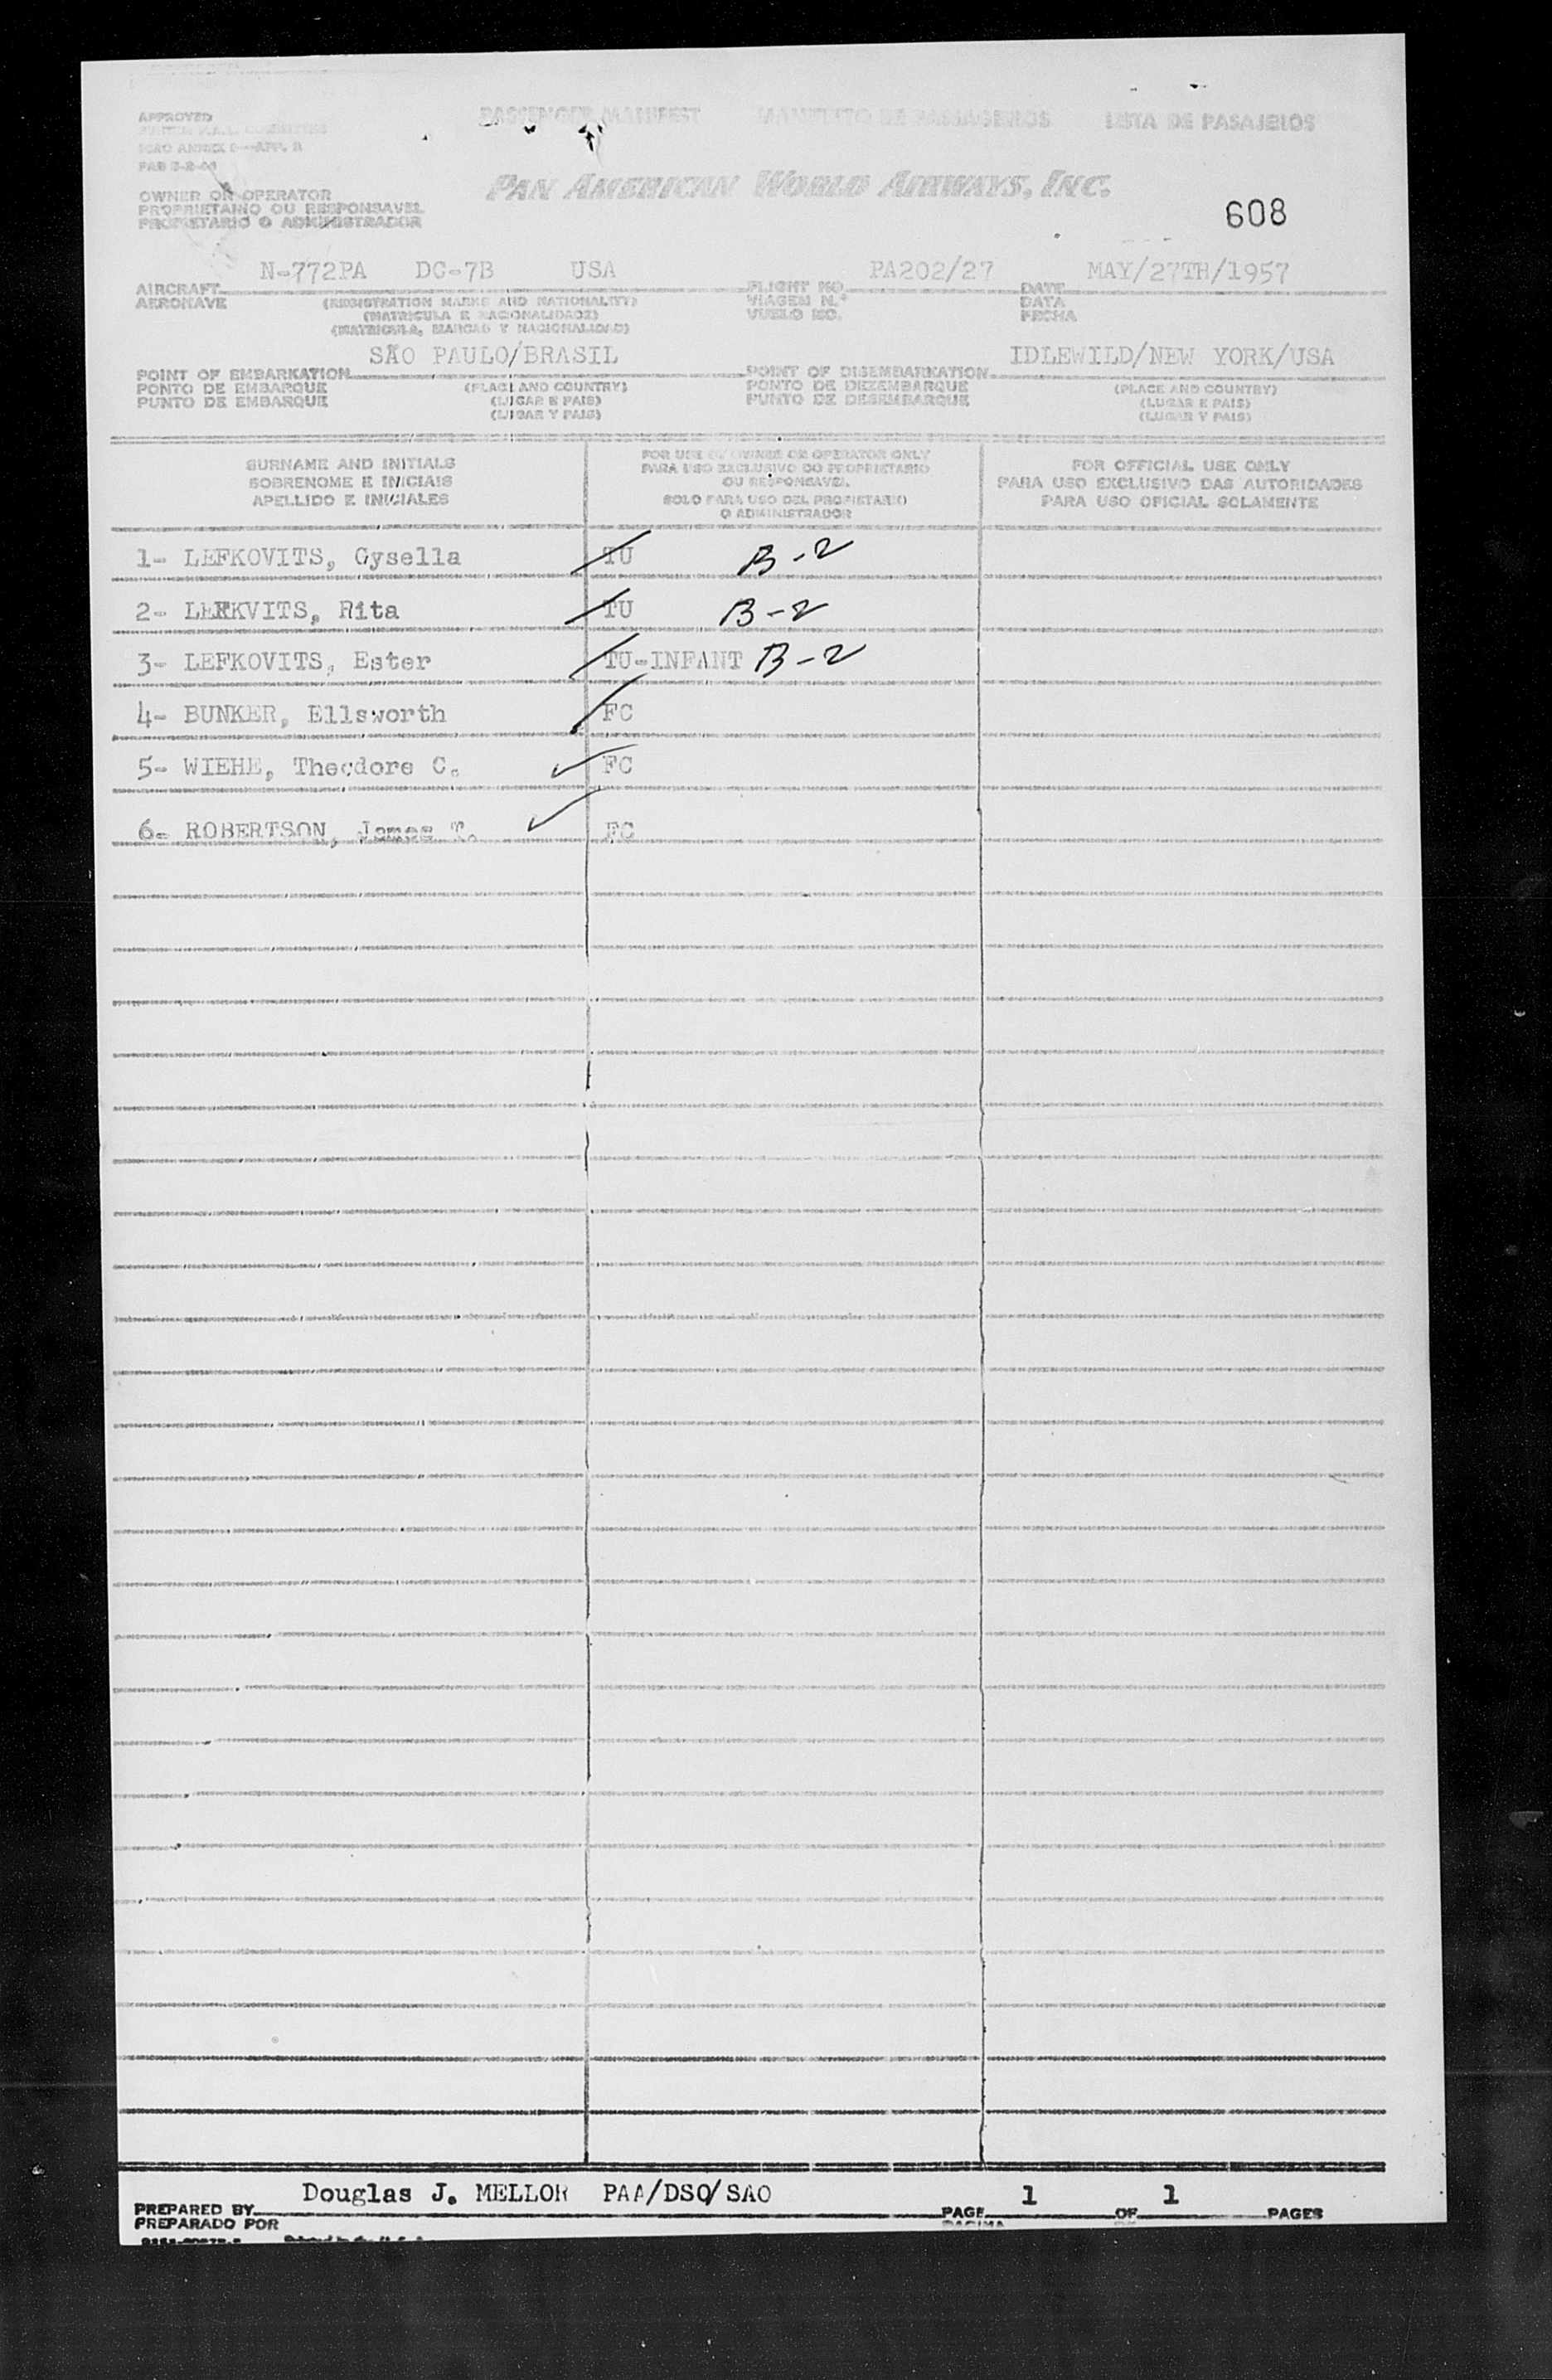 APPROVED
PASSENGER MANIFEST MANIFESTO DE PASSAGEIROS LISTA DE PASAJEROS
ICAO ANNEX 9—APP. 2
OWNER OR OPERATOR
PROPRIETARIO OU RESPONSAVEL
PROPIETARIO O ADMINISTRADOR
PAN AMERICAN WORLD AIRWAYS, INC.
608
N-772PA DC-7B USA PA202/27 MAY/27TH/1957
AIRCRAFT FLIGHT NO. DATE
AERONAVE (REGISTRATION MARKS AND NATIONALITY) VIAGEM N.º DATA
(MATRICULA E NACIONALIDADE) VUELO NO. FECHA
(MATRICULA, MARCAS Y NACIONALIDAD)
SÃO PAULO/BRASIL IDLEWILD/NEW YORK/USA
POINT OF EMBARKATION POINT OF DISEMBARKATION
PONTO DE EMBARQUE (PLACE AND COUNTRY) PONTO DE DEZEMBARQUE (PLACE AND COUNTRY)
PUNTO DE EMBARQUE (LUGAR E PAIS) PUNTO DE DESEMBARQUE (LUGAR E PAIS)
(LUGAR Y PAIS) (LUGAR Y PAIS)
SURNAME AND INITIALS
SOBRENOME E INICIAIS
APELLIDO E INICIALES
FOR USE BY OWNER OR OPERATOR ONLY
PARA USO EXCLUSIVO DO PROPRIETARIO
OU RESPONSAVEL
SOLO PARA USO DEL PROPIETARIO
O ADMINISTRADOR
FOR OFFICIAL USE ONLY
PARA USO EXCLUSIVO DAS AUTORIDADES
PARA USO OFICIAL SOLAMENTE
1- LEFKOVITS, Gysella TU B-2
2- LEFKVITS, Rita TU B-2
3- LEFKOVITS, Ester TU-INFANT B-2
4- BUNKER, Ellsworth FC
5- WIEHE, Theodore C. FC
6- ROBERTSON, James T. FC
Douglas J. MELLOR PAA/DSO/SAO 1 1
PREPARED BY PAGE OF PAGES
PREPARADO POR PAGINA